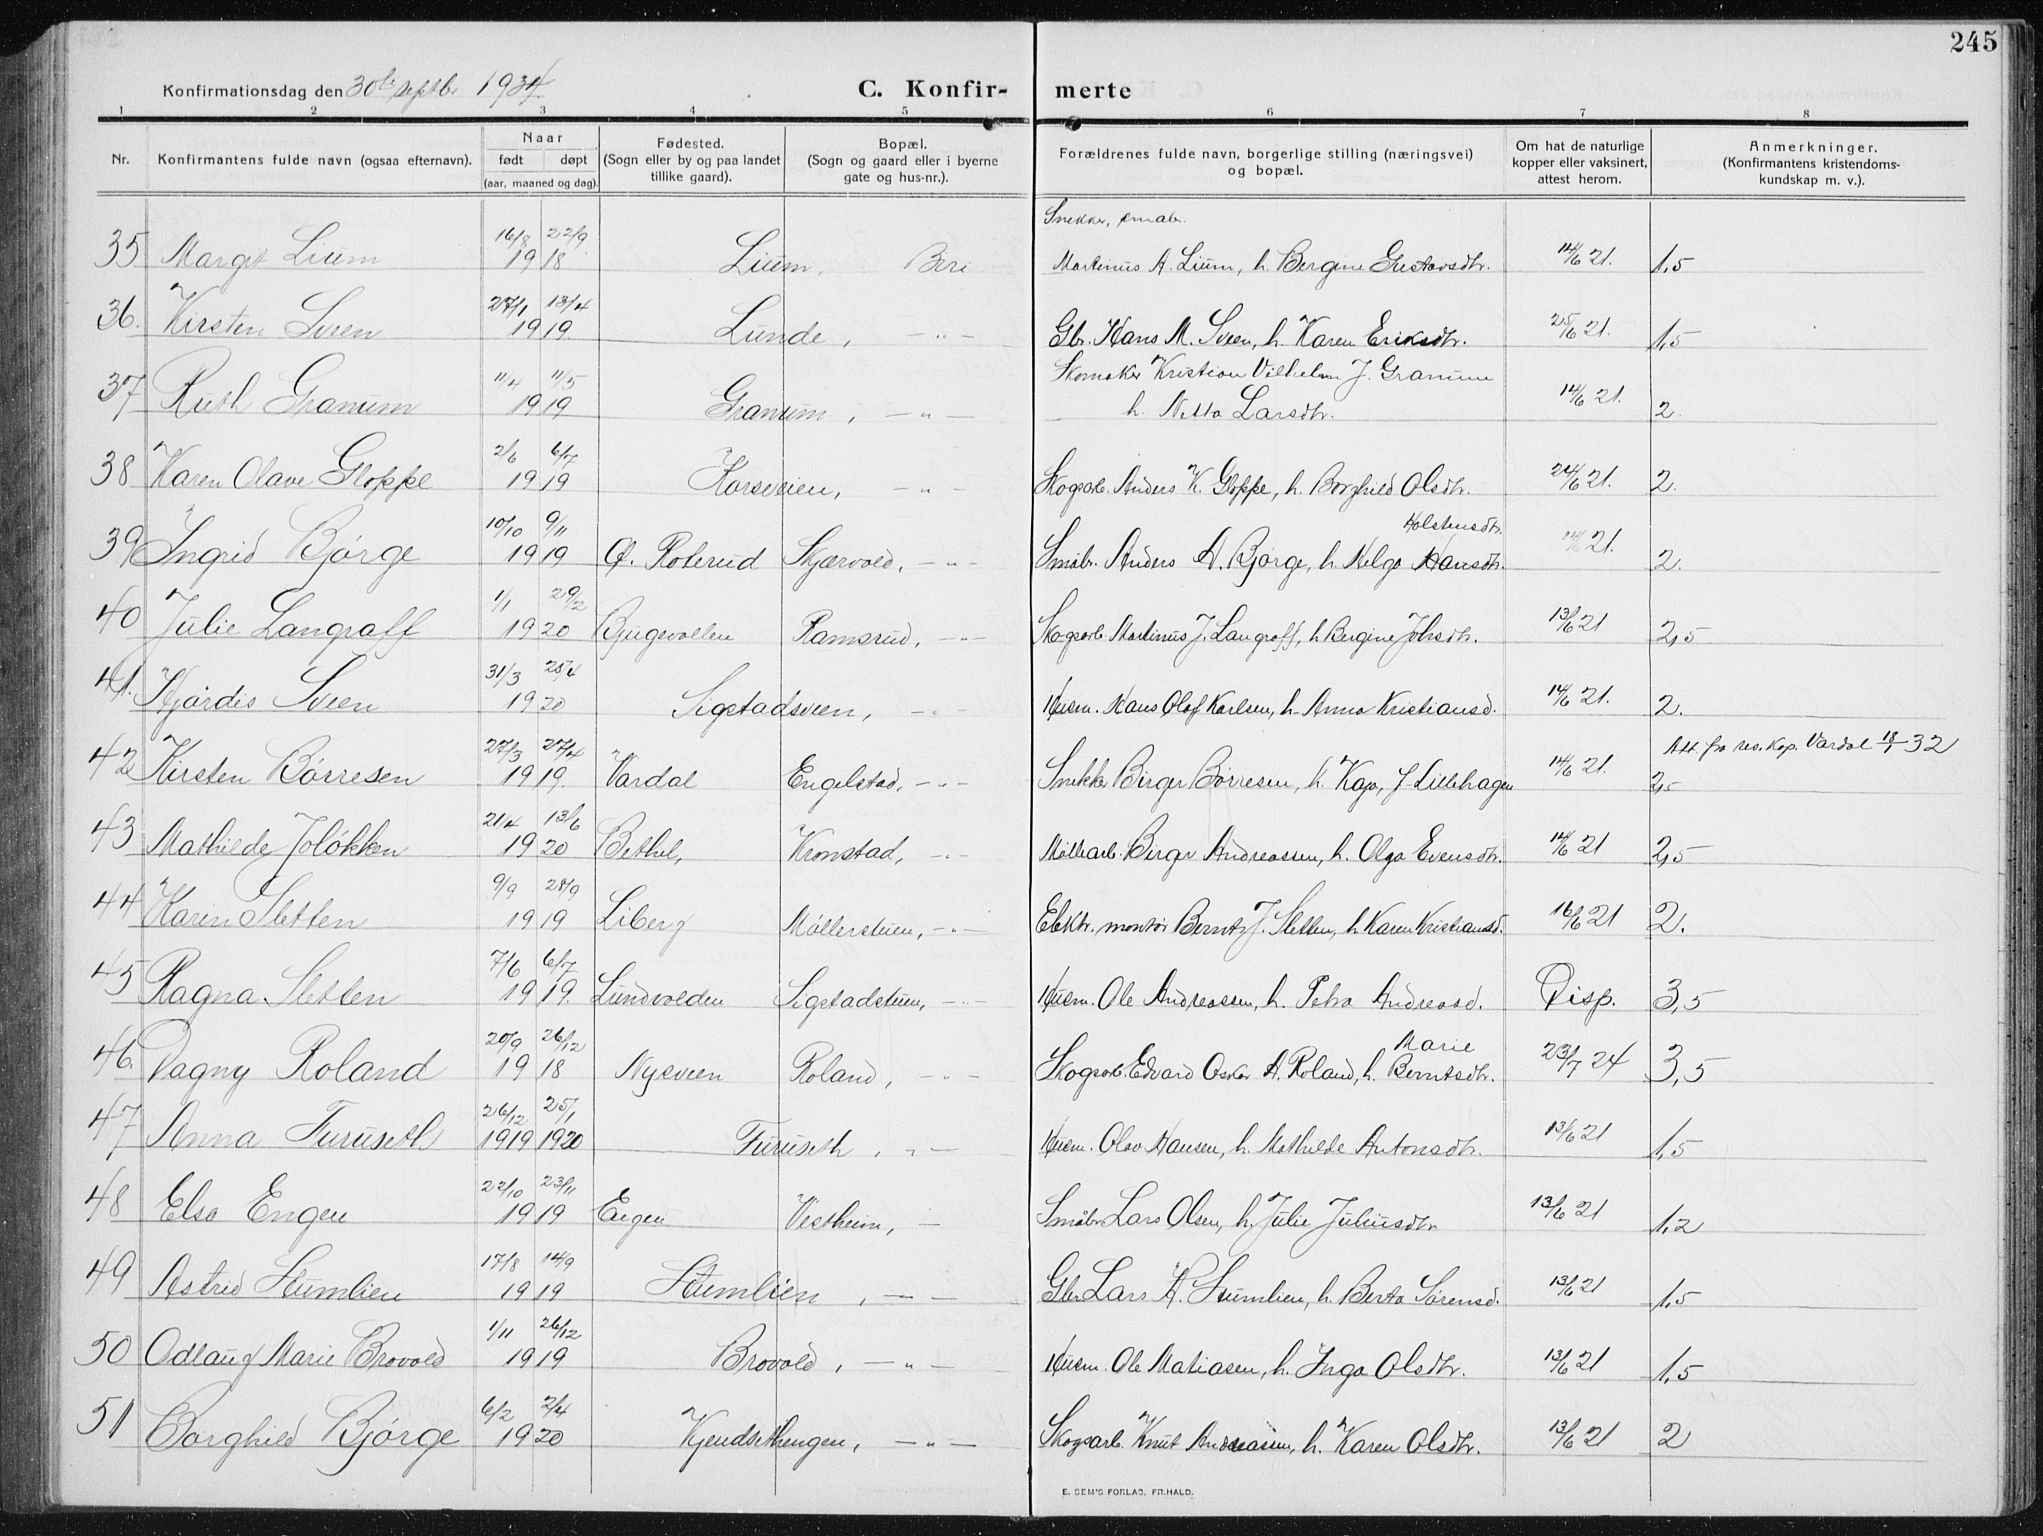 245
Konfirmationsdag den 30te septbr. 1934.
C. Konfir-merte
1 2 3 4 5 6 7 8
Nr. Konfirmantens fulde navn (ogsaa efternavn). Naar født døpt (aar, maaned og dag). Fødested. (Sogn eller by og paa landet tillike gaard). Bopæl. (Sogn og gaard eller i byerne gate og hus-nr.). Forældrenes fulde navn, borgerlige stilling (næringsvei) og bopæl. Om hat de naturlige kopper eller vaksinert, attest herom. Anmerkninger. (Konfirmantens kristendoms-kundskap m. v.).
Snekker, småbr.
35 Margit Lium 16/8 22/9 1918 Lium, Biri Martinus A. Lium, h. Bergine Gustavsdtr. 14/6 21. 1,5
36. Kirsten Sveen 27/1 13/4 1919 Lunde, - " - Gbr. Hans M. Sveen, h. Karen Eriksdtr. 25/6 21. 1,5
37 Ruth Granum 11/4 11/5 1919 Granum, - " - Skomaker Kristian Vilhelm J. Granum
h. Netta Larsdtr. 14/6 21. 2.
38 Karen Olave Gloppe 2/6 6/7 1919 Korsveien, - " - Skogsarb. Anders K. Gloppe, h. Borghild Olsdtr. 24/6 21. 2.
Holstensdtr.
39 Ingrid Bjørge 10/10 9/11 1919 Ø. Roterud Skjærvold, - " - Småbr. Anders A. Bjørge, h. Helga Hansdtr. 14/6 21. 2.
40 Julie Langraff 1/1 29/2 1920 Bjugsvollen Ramsrud, - " - Skogsarb. Martinus J. Langraff, h. Bergine Johsdtr. 13/6 21 2,5
41. Hjørdis Sveen 31/3 25/4 1920 Sigstadsveen, - " - Husm. Hans Olaf Karlsen, h. Anna Kristiansd. 14/6 21. 2.
Att. fra res. kap. Vardal 18/1-32
42 Kirsten Børresen 27/3 27/4 1919. Vardal Engelstad, - " - Snekker Birger Børresen, h. Kaja, f. Lillehagen 14/6 21. 2,5
43 Mathilde Joløkken 21/4 13/6 1920 Bethel, Kronstad, - " - Møllearb. Birger Andreassen, h. Olga Evensdtr. 14/6 21 2,5
44 Karin Sletten 9/9 28/9 1919 Liberg Møllerstuen, - " - Elektr. montør Bernt J. Sletten, h. Karen Kristiansd. 16/6 21 2.
45 Ragna Sletten 7/6 6/7 1919. Lundvolden Sigstadstuen, - " - Husm. Ole Andreassen, h. Petra Andreasd. Disp. 3,5
Marie
46. Dagny Roland 20/9 26/12 1918 Nysveen Roland, - " - Skogsarb. Edvard Oskar A. Roland, h. Berntsdtr. 23/7 24 3,5
47 Anna Furuseth 26/12 25/1 1919 1920 Furuseth, " - Husm. Olav Hansen, h. Mathilde Antonsdtr. 13/6 21 1,5
48 Elsa Engen 22/10 23/11 1919 Engen Vestheim, - Småbr. Lars Olsen, h. Julie Juliusdtr 13/6 21 1,2
49 Astrid Stumlien 17/8 14/9 1919 Stumlien, - - Gbr. Lars A. Stumlien, h. Berta Sørensd. 13/6 21 1,5
50 Odlaug Marie Brovold 1/11 26/12 1919 Brovold, - " - Husm. Ole Matiasen, h. Inga Olsdtr. 13/6 21 1,5
51 Borghild Bjørge 6/2 2/4 1920 Kjendsethengen, - " - Skogsarb. Knut Andreasen, h. Karen Olsdtr. 13/6 21 2
E. SEM'S FORLAG, FR.HALD.